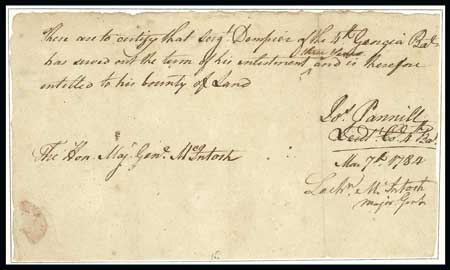 These are to certify that Serj.t Dempsie of the 4th Georgia Bat.
three years
has served out the term of his inlistment ^ and is therefore
entitled to his bounty of Land
Jos. Pannill
Lieut. Col. 4th Bat.
The Hon. Maj. Genl. McIntosh
Mar. 7th 1784
Lachn. McIntosh
Major Genl.